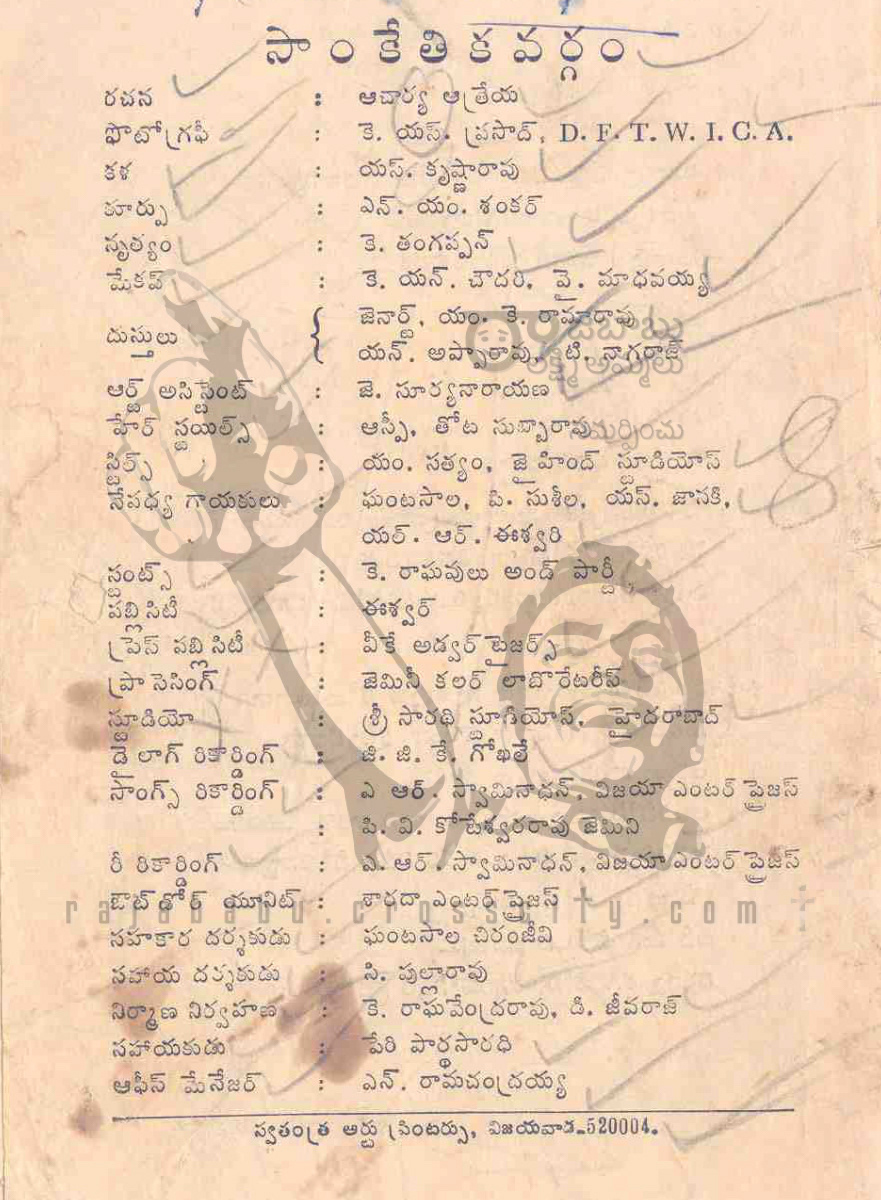 సాంకేతికవర్గం
రచన : ఆచార్య ఆత్రేయ
ఫొటోగ్రఫీ : కె. యస్. ప్రసాద్, D. F. T. W. I. C. A.
కళ : యస్. కృష్ణారావు
కూర్పు : ఎన్. యం. శంకర్
నృత్యం : కె. తంగప్పన్
మేకప్ : కె. యన్. చౌదరి, వై. మాధవయ్య
జెనార్ట్, యం. కె. రామారావు
దుస్తులు {
యన్. అప్పారావు, టి. నాగరాజ్
ఆర్ట్ అసిస్టెంట్ : జె. సూర్యనారాయణ
హేర్ స్టయిల్స్ : ఆస్పీ, తోట సుబ్బారావు
స్టిల్స్ : యం. సత్యం, జైహింద్ స్టూడియోస్
నేపధ్య గాయకులు : ఘంటసాల, పి. సుశీల, యస్. జానకి,
యల్. ఆర్. ఈశ్వరి
స్టంట్స్ : కె. రాఘవులు అండ్ పార్టీ
పబ్లిసిటీ : ఈశ్వర్
ప్రెస్ పబ్లిసిటీ : వీకే అడ్వర్‌టైజర్స్
ప్రాసెసింగ్ : జెమినీ కలర్ లాబొరేటరీస్
స్టూడియో : శ్రీ సారథి స్టూడియోస్, హైదరాబాద్
డైలాగ్ రికార్డింగ్ : జి. జి. కే. గోఖలే
సాంగ్స్ రికార్డింగ్ : ఎ ఆర్. స్వామినాధన్, విజయా ఎంటర్ ప్రైజస్
: పి. వి. కోటేశ్వరరావు జెమిని
రీ రికార్డింగ్ : ఎ. ఆర్. స్వామినాధన్, విజయా ఎంటర్ ప్రైజస్
ఔట్‌డోర్ యూనిట్ : శారదా ఎంటర్ ప్రైజస్
rajababu.crosscity.com
సహకార దర్శకుడు : ఘంటసాల చిరంజీవి
సహాయ దర్శకుడు : సి. పుల్లారావు
నిర్మాణ నిర్వహణ : కె. రాఘవేంద్రరావు, డి. జీవరాజ్
సహాయకుడు : పేరి పార్థసారధి
ఆఫీస్ మేనేజర్ : ఎన్. రామచంద్రయ్య
స్వతంత్ర ఆర్టు ప్రింటర్సు, విజయవాడ-520004.